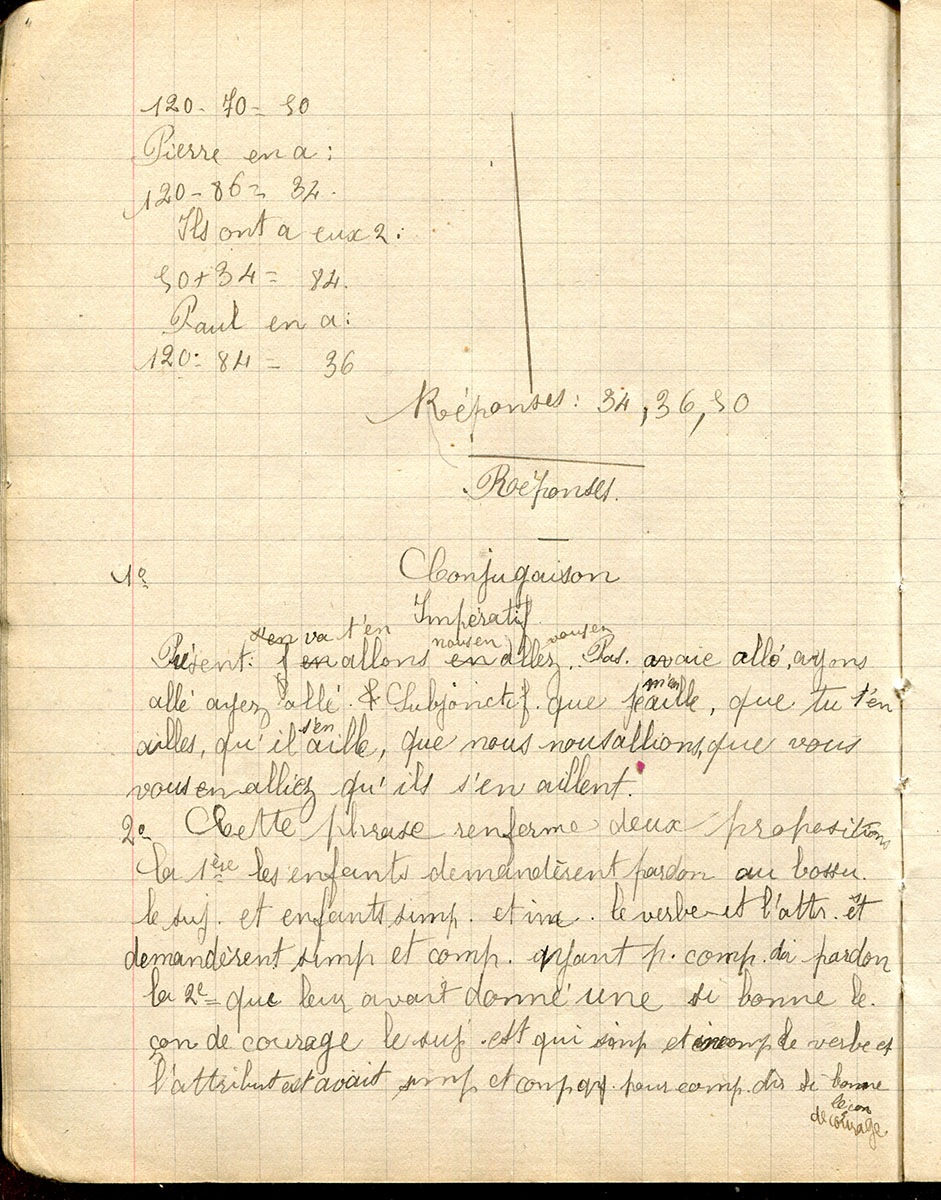 120 - 70 = 50
Pierre en a :
120 - 86 = 34.
Ils ont a eux 2 :
50 + 34 = 84.
Paul en a :
120 - 84 = 36
Réponses : 34, 36, 50
Réponses.
1º Conjugaison
Impératif
va t'en nous en vous en
Présent : allons allez. Pas. aie allé, ayons
m'en
allé ayez allé. Subjonctif. que j'aille, que tu t'en
s'en
ailles, qu'il aille, que nous nous allions, que vous
vous en alliez qu'ils s'en aillent.
2º Cette phrase renferme deux propositions
la 1ère les enfants demandèrent pardon au bossu.
le suj. et enfants simp. et inc. le verbe et l'attr. est
demandèrent simp et comp. ayant p. comp. dir pardon
la 2e = que leur avait donné une si bonne le.
çon de courage le suj. est qui simp et incomp le verbe et
l'attribut est avait simp et comp pour comp. dir si bonne
leçon
de courage.